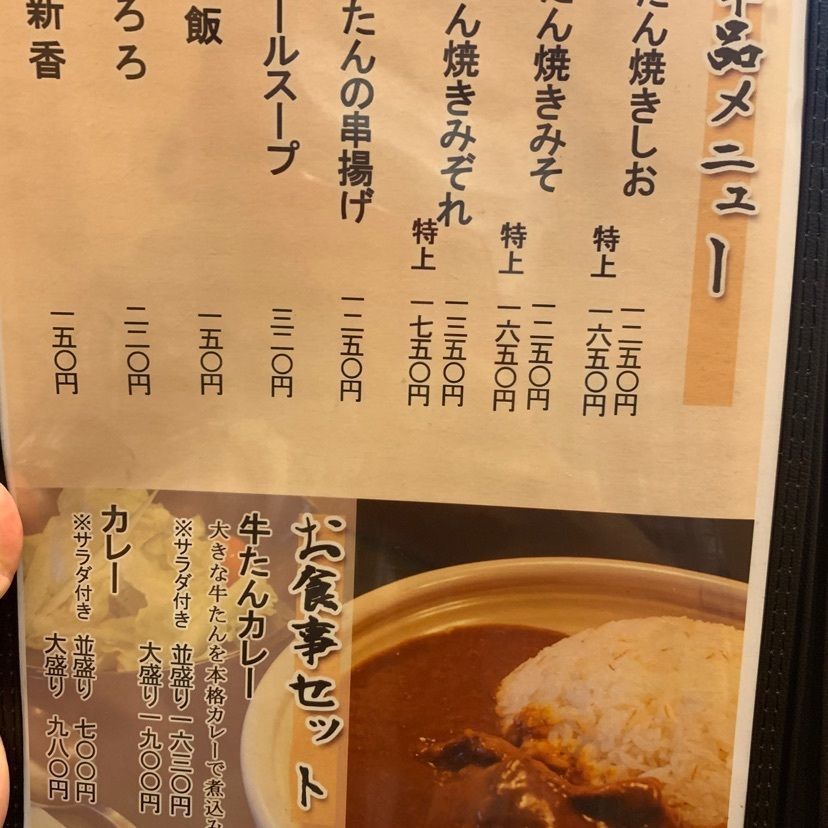 品メニュー
たん焼きしお
一二五〇円
特上 一六五〇円
ん焼きみそ
一二五〇円
特上 一六五〇円
ん焼きみぞれ
一三五〇円
特上 一七五〇円
たんの串揚げ
一二五〇円
ールスープ
三二〇円
飯
一五〇円
ろろ
二二〇円
新香
一五〇円
お食事セット
牛たんカレー
大きな牛たんを本格カレーで煮込み
※サラダ付き
並盛り 一六三〇円
大盛り 一九〇〇円
カレー
※サラダ付き
並盛り 七〇〇円
大盛り 九八〇円